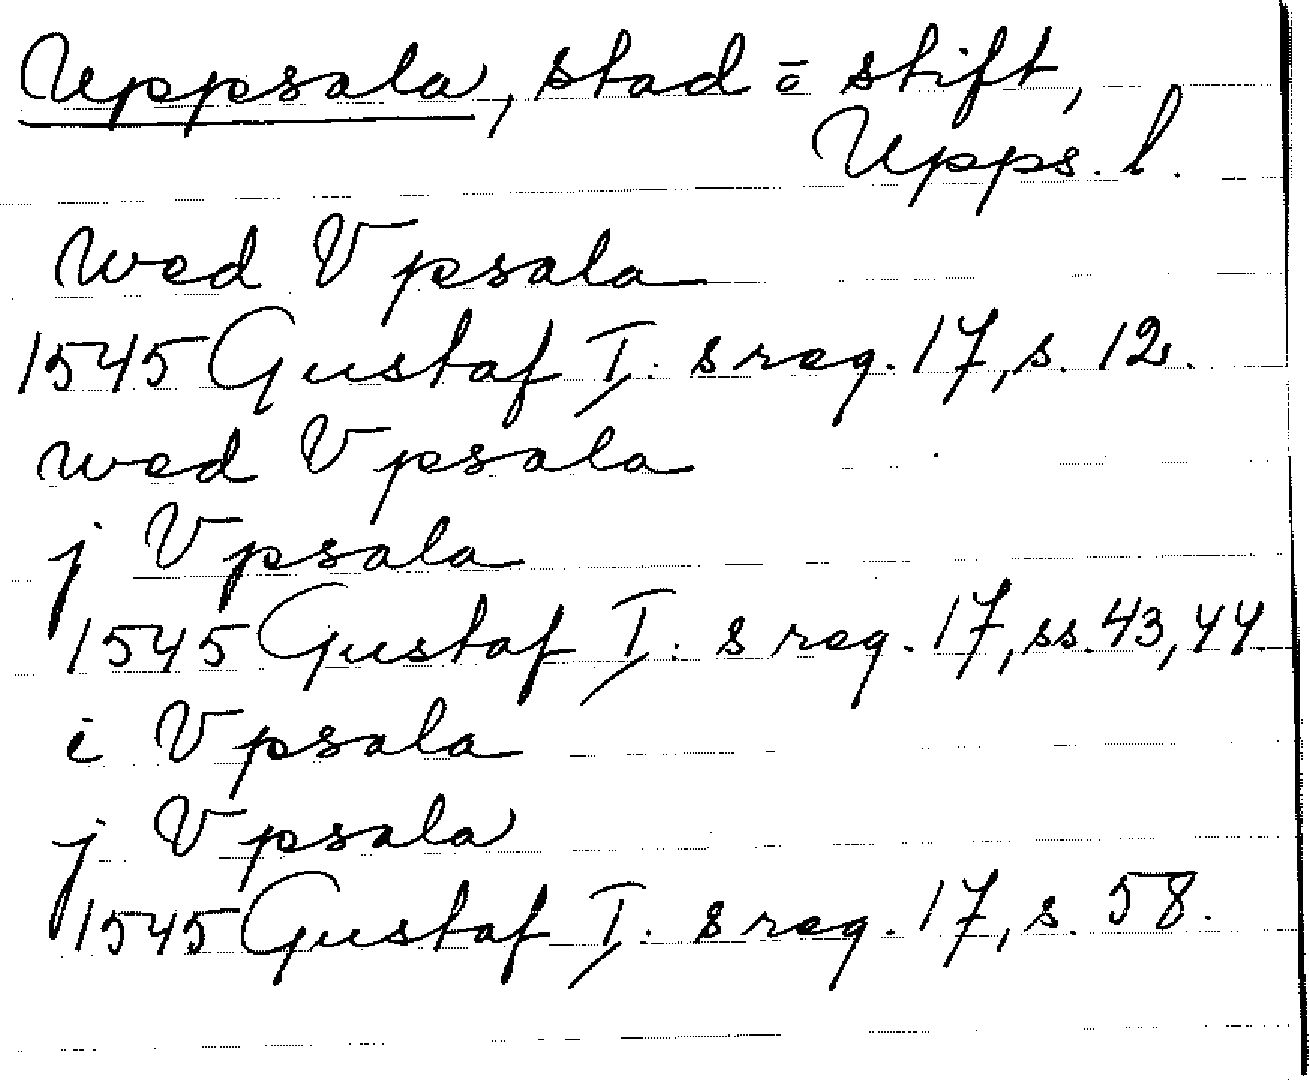 Uppsala, stad o stift,
Upps. l.
wed Vpsala
1545 Gustaf I:s reg. 17, s. 12.
wed Vpsala
j Vpsala
1545 Gustaf I:s reg. 17, ss. 43, 44
i Vpsala
j Vpsala
1545 Gustaf I:s reg. 17, s. 58.